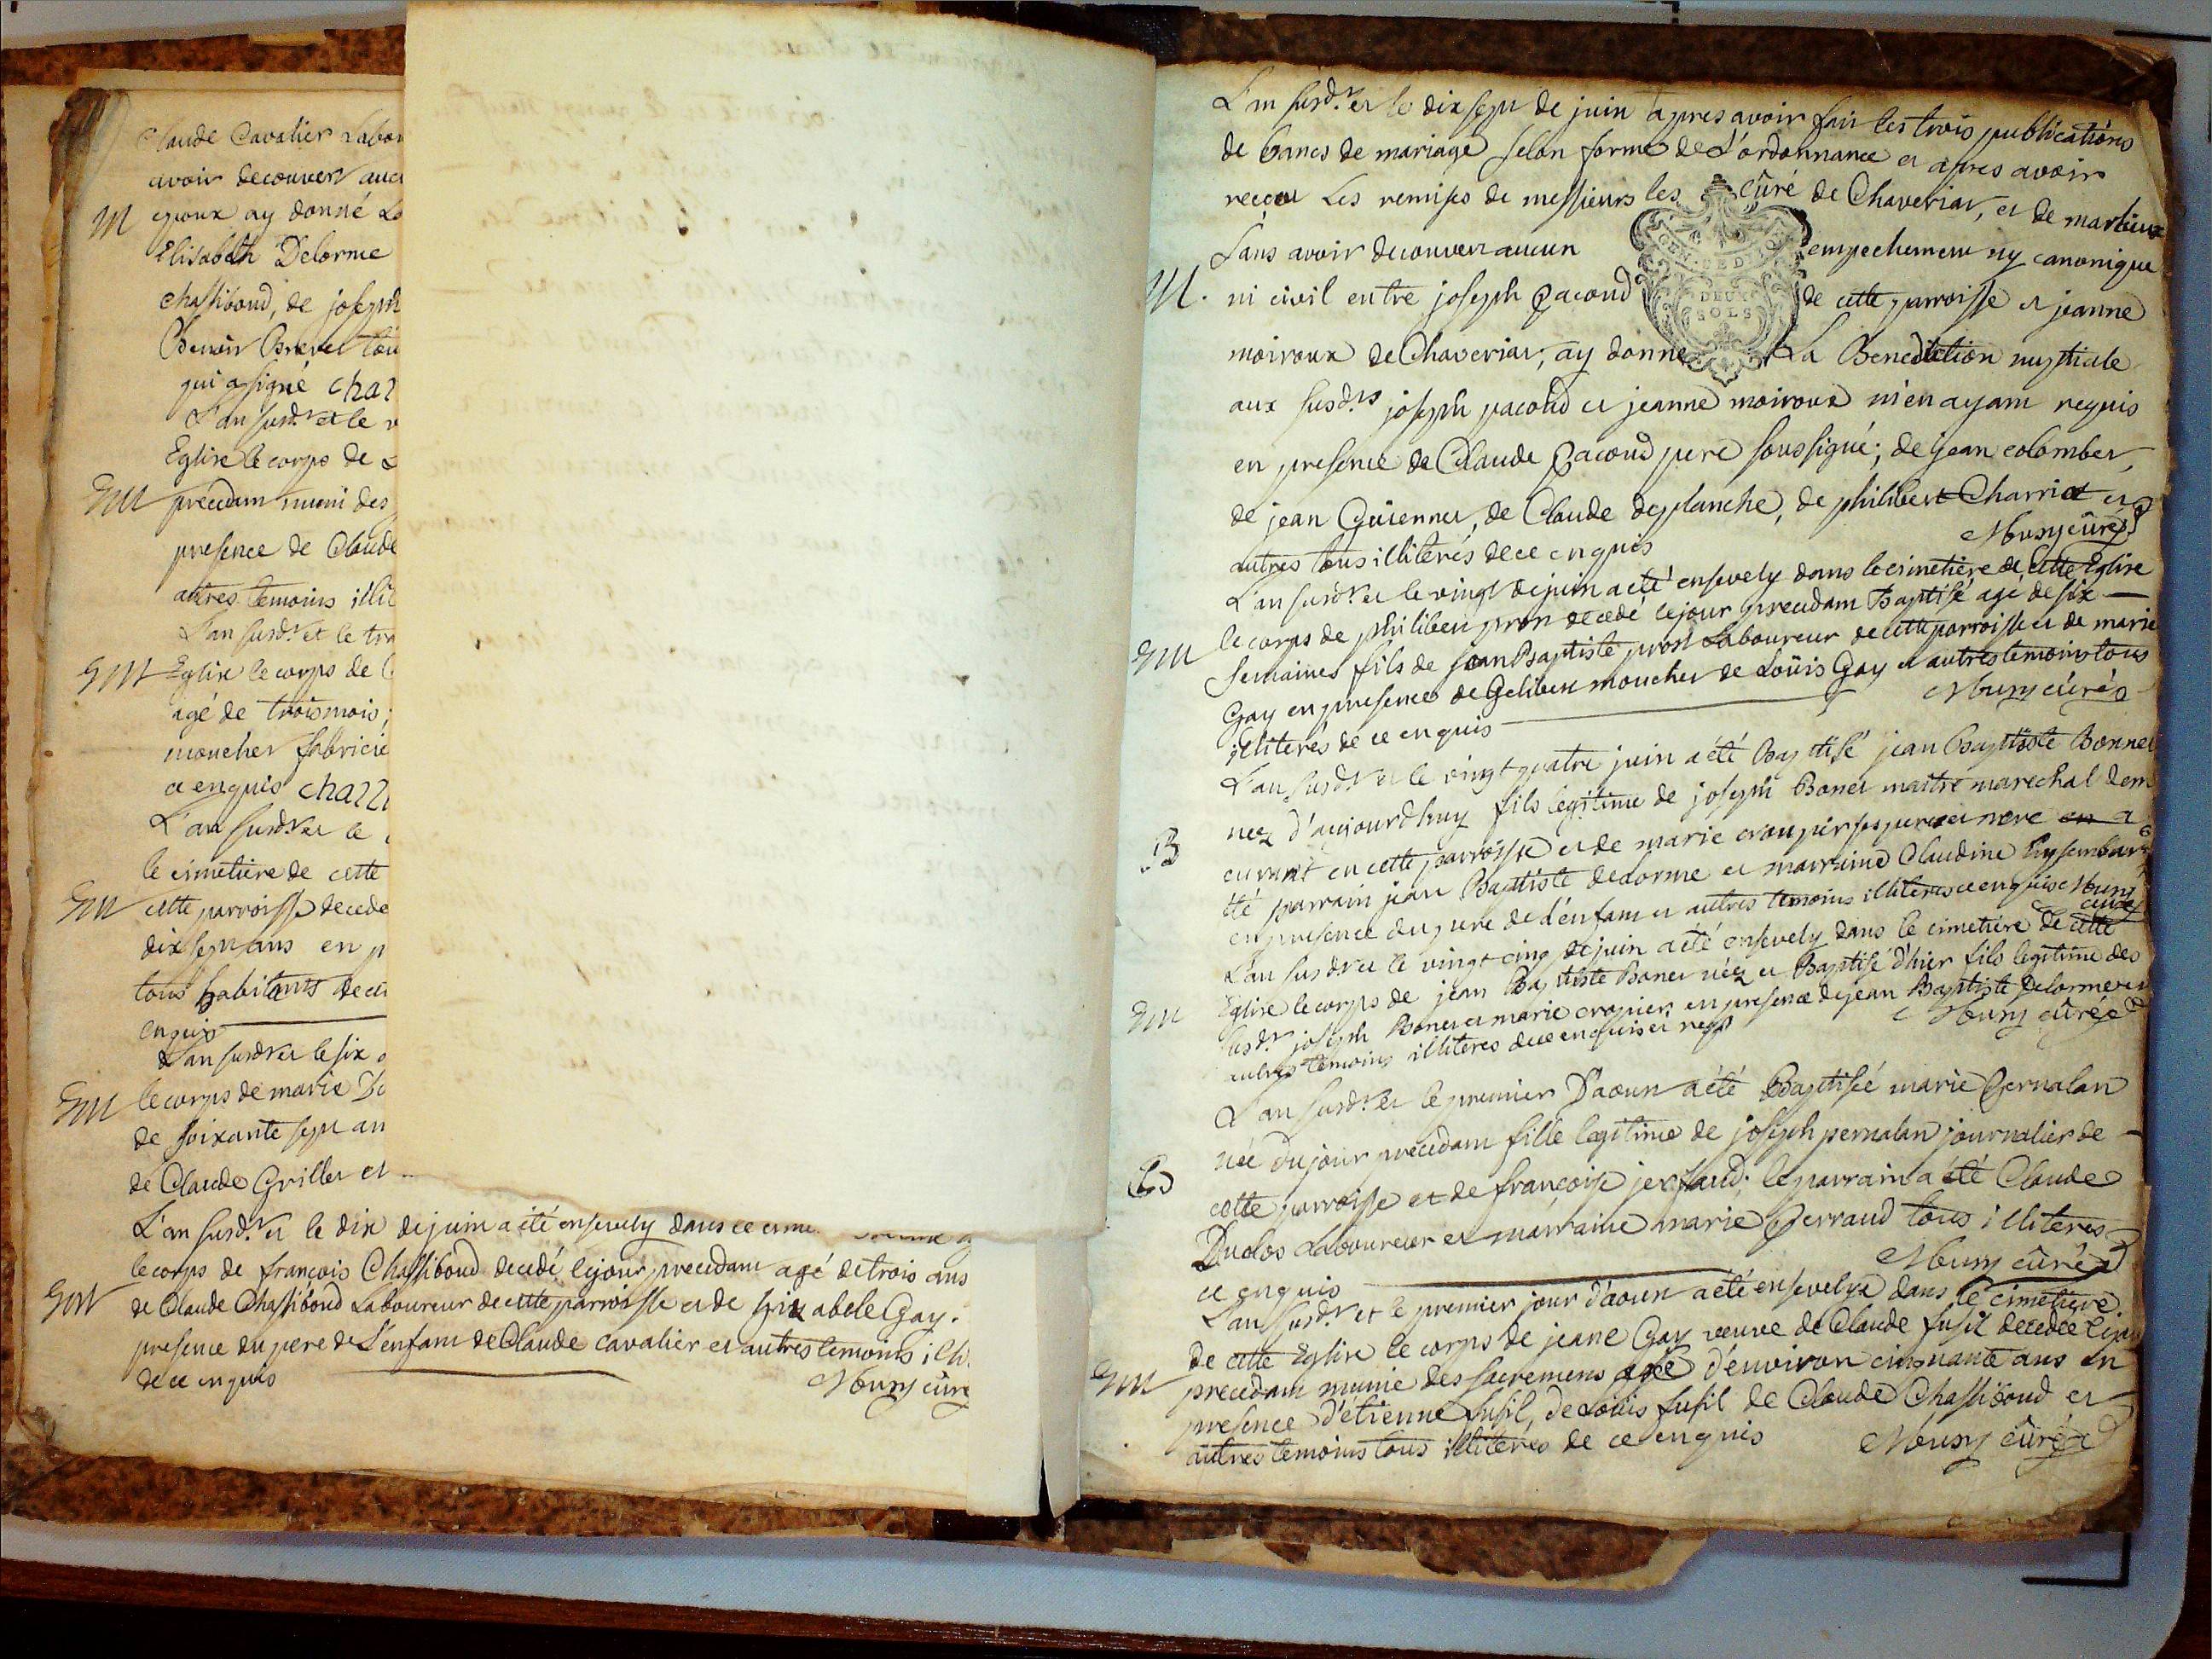 Claude Cavalier Labou
avoir decouvert auc
M epoux ay donné La
Elisabeth Delorme
chassiboud, de joseph
Benoit Brevet tou
qui a signé chaz
L'an susd.t et le v
Eglise le corps de
precedant muni des
presence de Claude
autres temoins illit
L'an susd.t et le
Eglise le corps de
agé de trois mois;
moucher fabricie
ce enquis
L'an susd.t et le
le cimetiere de cette
cette parroisse decede
dix sept ans en p
tous habitants de ce
enquis
L'an susd.t et le six
le corps de marie
de soixante sept an
de Claude Grillet et
L'an susd.t et le dix de juin a été ensevely dans ce
le corps de françois Chassiboud decedé le jour precedant agé de trois ans
de Claude Chassiboud Laboureur de cette parroisse et de Gay.
presence du pere de L'enfant de Claude cavalier et autres temoins
de ce enquis Mury curé
L'an susd.t et le dix sept de juin apres avoir fait les trois publications
de bancs de mariage selon forme de L'ordonnance et apres avoir
reçeu Les remises de messieurs les curé de Chaveriat, et de
sans avoir decouvert aucun empechement ny canonique
M. ni civil entre joseph pacoud de cette parroisse et jeanne
GEN. DE DIJON
DEUX
SOLS
moiroux de Chaveriat, ay donné La Benediction nuptiale
aux susd.ts joseph pacoud et jeanne moiroux m'en ayant requis
en presence de Claude pacoud pere soussigné; de jean colombet,
de jean Guiennet, de Claude deplanche, de philibert Charriot et
autres tous illiterés de ce enquis Mury curé
L'an susd.t et le vingt de juin a été ensevely dans le cimetiere de cette Eglise
le corps de philibert prost decedé le jour precedant Baptisé agé de six
semaines fils de jean Baptiste prost Laboureur de cette parroisse et de marie
Gay en presence de Gelibert moucher de Loüis Gay et autres temoins tous
illiterés de ce enquis Mury curé
L'an susd.t et le vingt quatre juin a été Baptisé jean Baptiste Bonnet
B neez d'aujourdhuy fils legitime de joseph Bonet maitre marechal dem
eurant en cette parroisse et de marie ses pere et mere a
été parrain jean Baptiste delorme et marraine Claudine
en presence du pere de l'enfant et autres temoins illiterés ce enquis Mury
curé
L'an susd.t et le vingt cinq de juin a été ensevely dans le cimetiere de cette
Eglise le corps de jean Baptiste Bonet néez et Baptisé d'hier fils legitime des
susd.ts joseph Bonet et marie en presence de jean Baptiste Delorme et
autres temoins illiterés de ce enquis et req. Mury curé
L'an susd.t et le premier D'aoust a été Baptiseé marie pernalan
B née du jour precedant fille legitime de joseph pernalan journalier de
cette parroisse et de françoise le parrain a été Claude
Duclos Laboureur et marraine marie perraud tous illiteres
ce enquis Mury curé
L'an susd.t et le premier jour d'aoust a été ensevelye dans le cimetiere
de cette Eglise le corps de jeane Gay veuve de Claude fusil decedée le jour
precedant munie des sacremens agée d'environ cinquante ans en
presence d'etienne fusil, de Loüis fusil de Claude Chassiboud et
autres temoins tous illiterés de ce enquis Mury curé